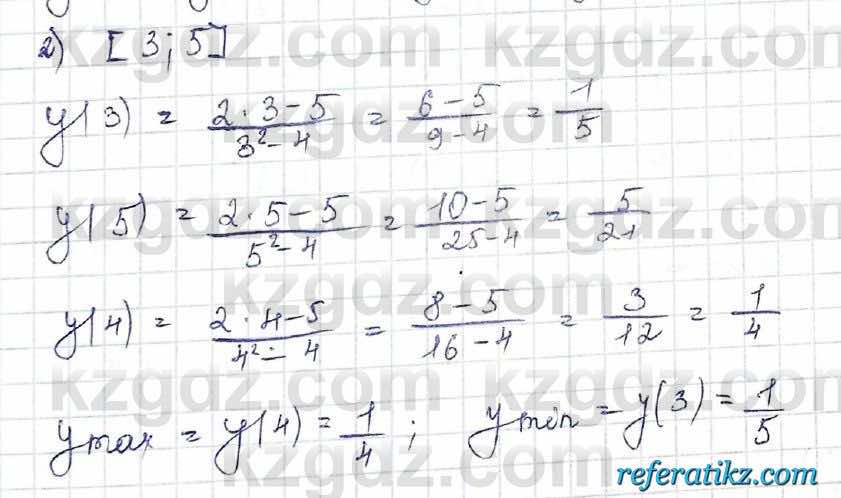 2) [3; 5]
y(3) = (2·3-5)/(3²-4) = (6-5)/(9-4) = 1/5
y(5) = (2·5-5)/(5²-4) = (10-5)/(25-4) = 5/21
y(4) = (2·4-5)/(4²-4) = (8-5)/(16-4) = 3/12 = 1/4
ymax = y(4) = 1/4; ymin = y(3) = 1/5
kzgdz.com
referatikz.com